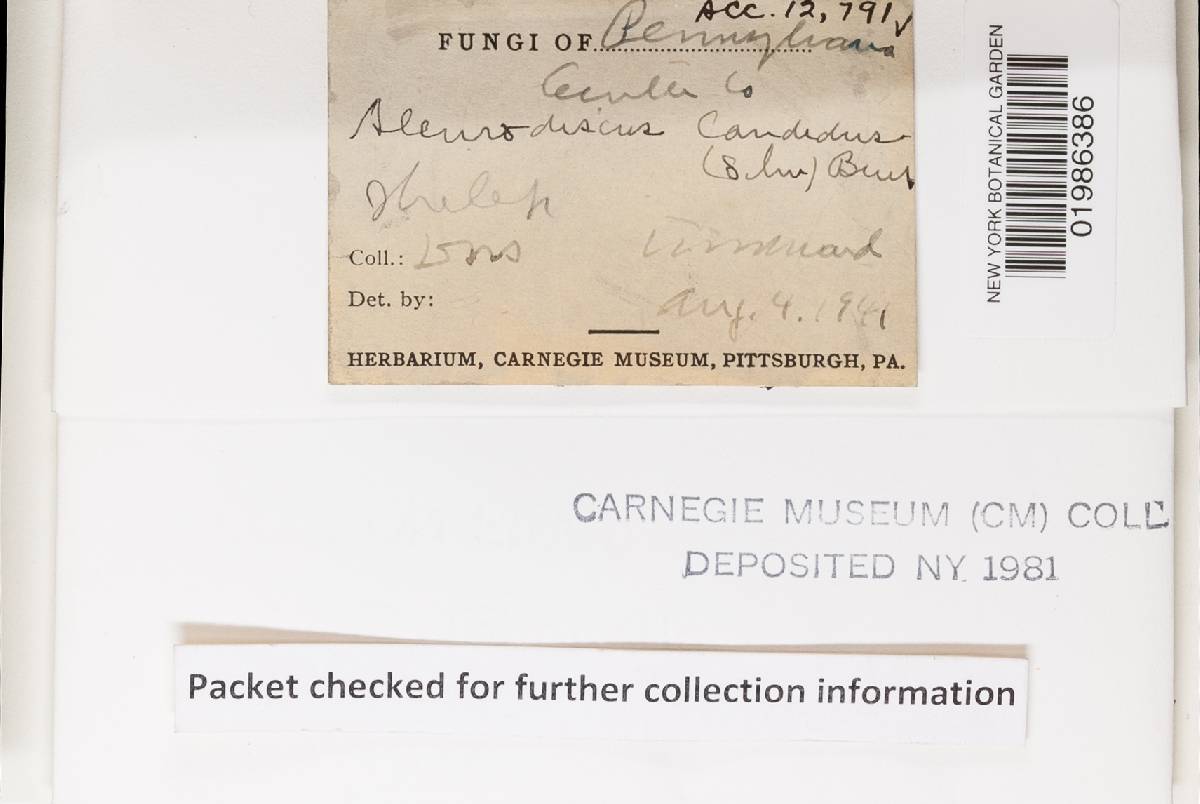 Acc. 12,791 ✓
FUNGI OF Pennsylvania
Centre Co
Aleurodiscus Candidus
(Schw) Burt
Coll.:
Det. by:
Aug. 4. 1941
HERBARIUM, CARNEGIE MUSEUM, PITTSBURGH, PA.
NEW YORK BOTANICAL GARDEN
01986386
CARNEGIE MUSEUM (CM) COLL
DEPOSITED NY. 1981
Packet checked for further collection information